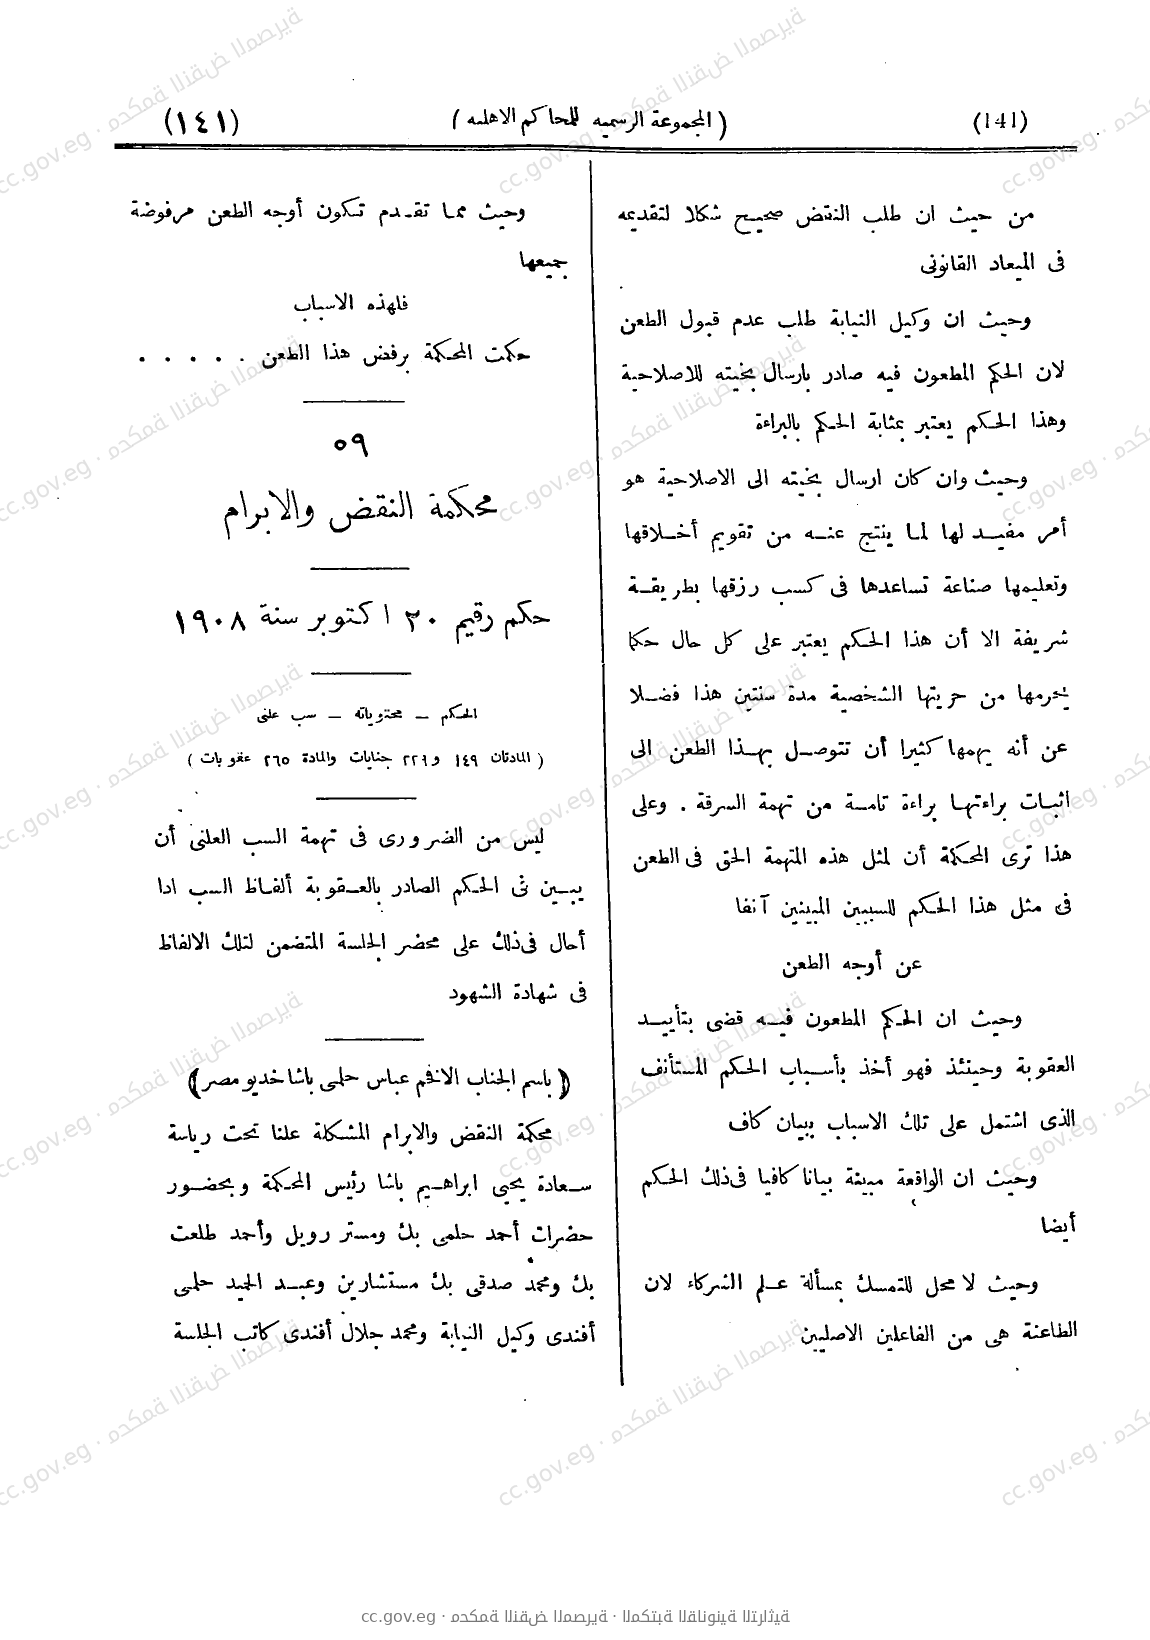 (141)
(المجموعة الرسمية للمحاكم الاهلية)
(١٤١)
من حيث ان طلب النقض صحيح شكلا لتقديمه
فى الميعاد القانونى
وحيث ان وكيل النيابة طلب عدم قبول الطعن
لان الحكم المطعون فيه صادر بارسال بخيته للاصلاحية
وهذا الحكم يعتبر بمثابة الحكم بالبراءة
وحيث وان كان ارسال بخيته الى الاصلاحية هو
أمر مفيد لها لما ينتج عنه من تقويم أخلاقها
وتعليمها صناعة تساعدها فى كسب رزقها بطريقة
شريفة الا أن هذا الحكم يعتبر على كل حال حكما
يحرمها من حريتها الشخصية مدة سنتين هذا فضلا
عن أنه يهمها كثيرا أن تتوصل بهذا الطعن الى
اثبات براءتها براءة تامة من تهمة السرقة . وعلى
هذا ترى المحكمة أن لمثل هذه المتهمة الحق فى الطعن
فى مثل هذا الحكم للسببين المبينين آنفا
عن أوجه الطعن
وحيث ان الحكم المطعون فيه قضى بتأييد
العقوبة وحينئذ فهو أخذ بأسباب الحكم المستأنف
الذى اشتمل على تلك الاسباب ببيان كاف
وحيث ان الواقعة مبينة بيانا كافيا فى ذلك الحكم
أيضا
وحيث لا محل للتمسك بمسألة علم الشركاء لان
الطاعنة هى من الفاعلين الاصليين
وحيث مما تقدم تكون أوجه الطعن مرفوضة
جميعها
فلهذه الاسباب
حكمت المحكمة برفض هذا الطعن . . . . .
٥٩
محكمة النقض والابرام
حكم رقيم ٣٠ اكتوبر سنة ١٩٠٨
الحكم – محتوياته – سب علنى
(المادتان ١٤٩ و٢٢٩ جنايات والمادة ٢٦٥ عقوبات)
ليس من الضرورى فى تهمة السب العلنى أن
يبين فى الحكم الصادر بالعقوبة ألفاظ السب اذا
أحال فى ذلك على محضر الجلسة المتضمن لتلك الالفاظ
فى شهادة الشهود
(باسم الجناب الافخم عباس حلمى باشا خديو مصر)
محكمة النقض والابرام المشكلة علنا تحت رياسة
سعادة يحيى ابراهيم باشا رئيس المحكمة وبحضور
حضرات أحمد حلمى بك ومستر رويل وأحمد طلعت
بك ومحمد صدقى بك مستشارين وعبد المجيد حلمى
أفندى وكيل النيابة ومحمد جلال أفندى كاتب الجلسة
cc.gov.eg · محكمة النقض المصرية · المكتبة القانونية التراثية